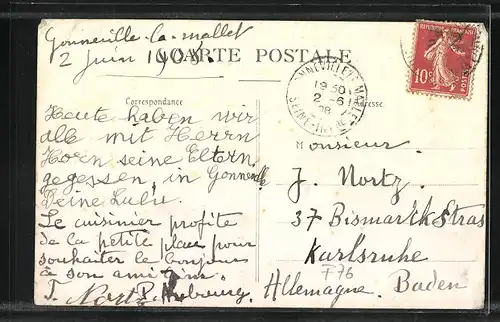 Gonneville-la-mallet
2 juin 1908
CARTE POSTALE
Correspondance
Adresse
REPUBLIQUE FRANÇAISE
10c
GONNEVILLE-LA-MALLET
19 30
2 - 6
08
SEINE-INF
Heute haben wir
alle mit Herrn
Horn seine Eltern
gegessen, in Gonneville
Deine Lulu.
Le cuisinier profite
de la petite place pour
souhaiter le bonjour
à son ami
Monsieur.
J. Nortz
37 Bismarckstras
Karlsruhe
F76
Allemagne. Baden